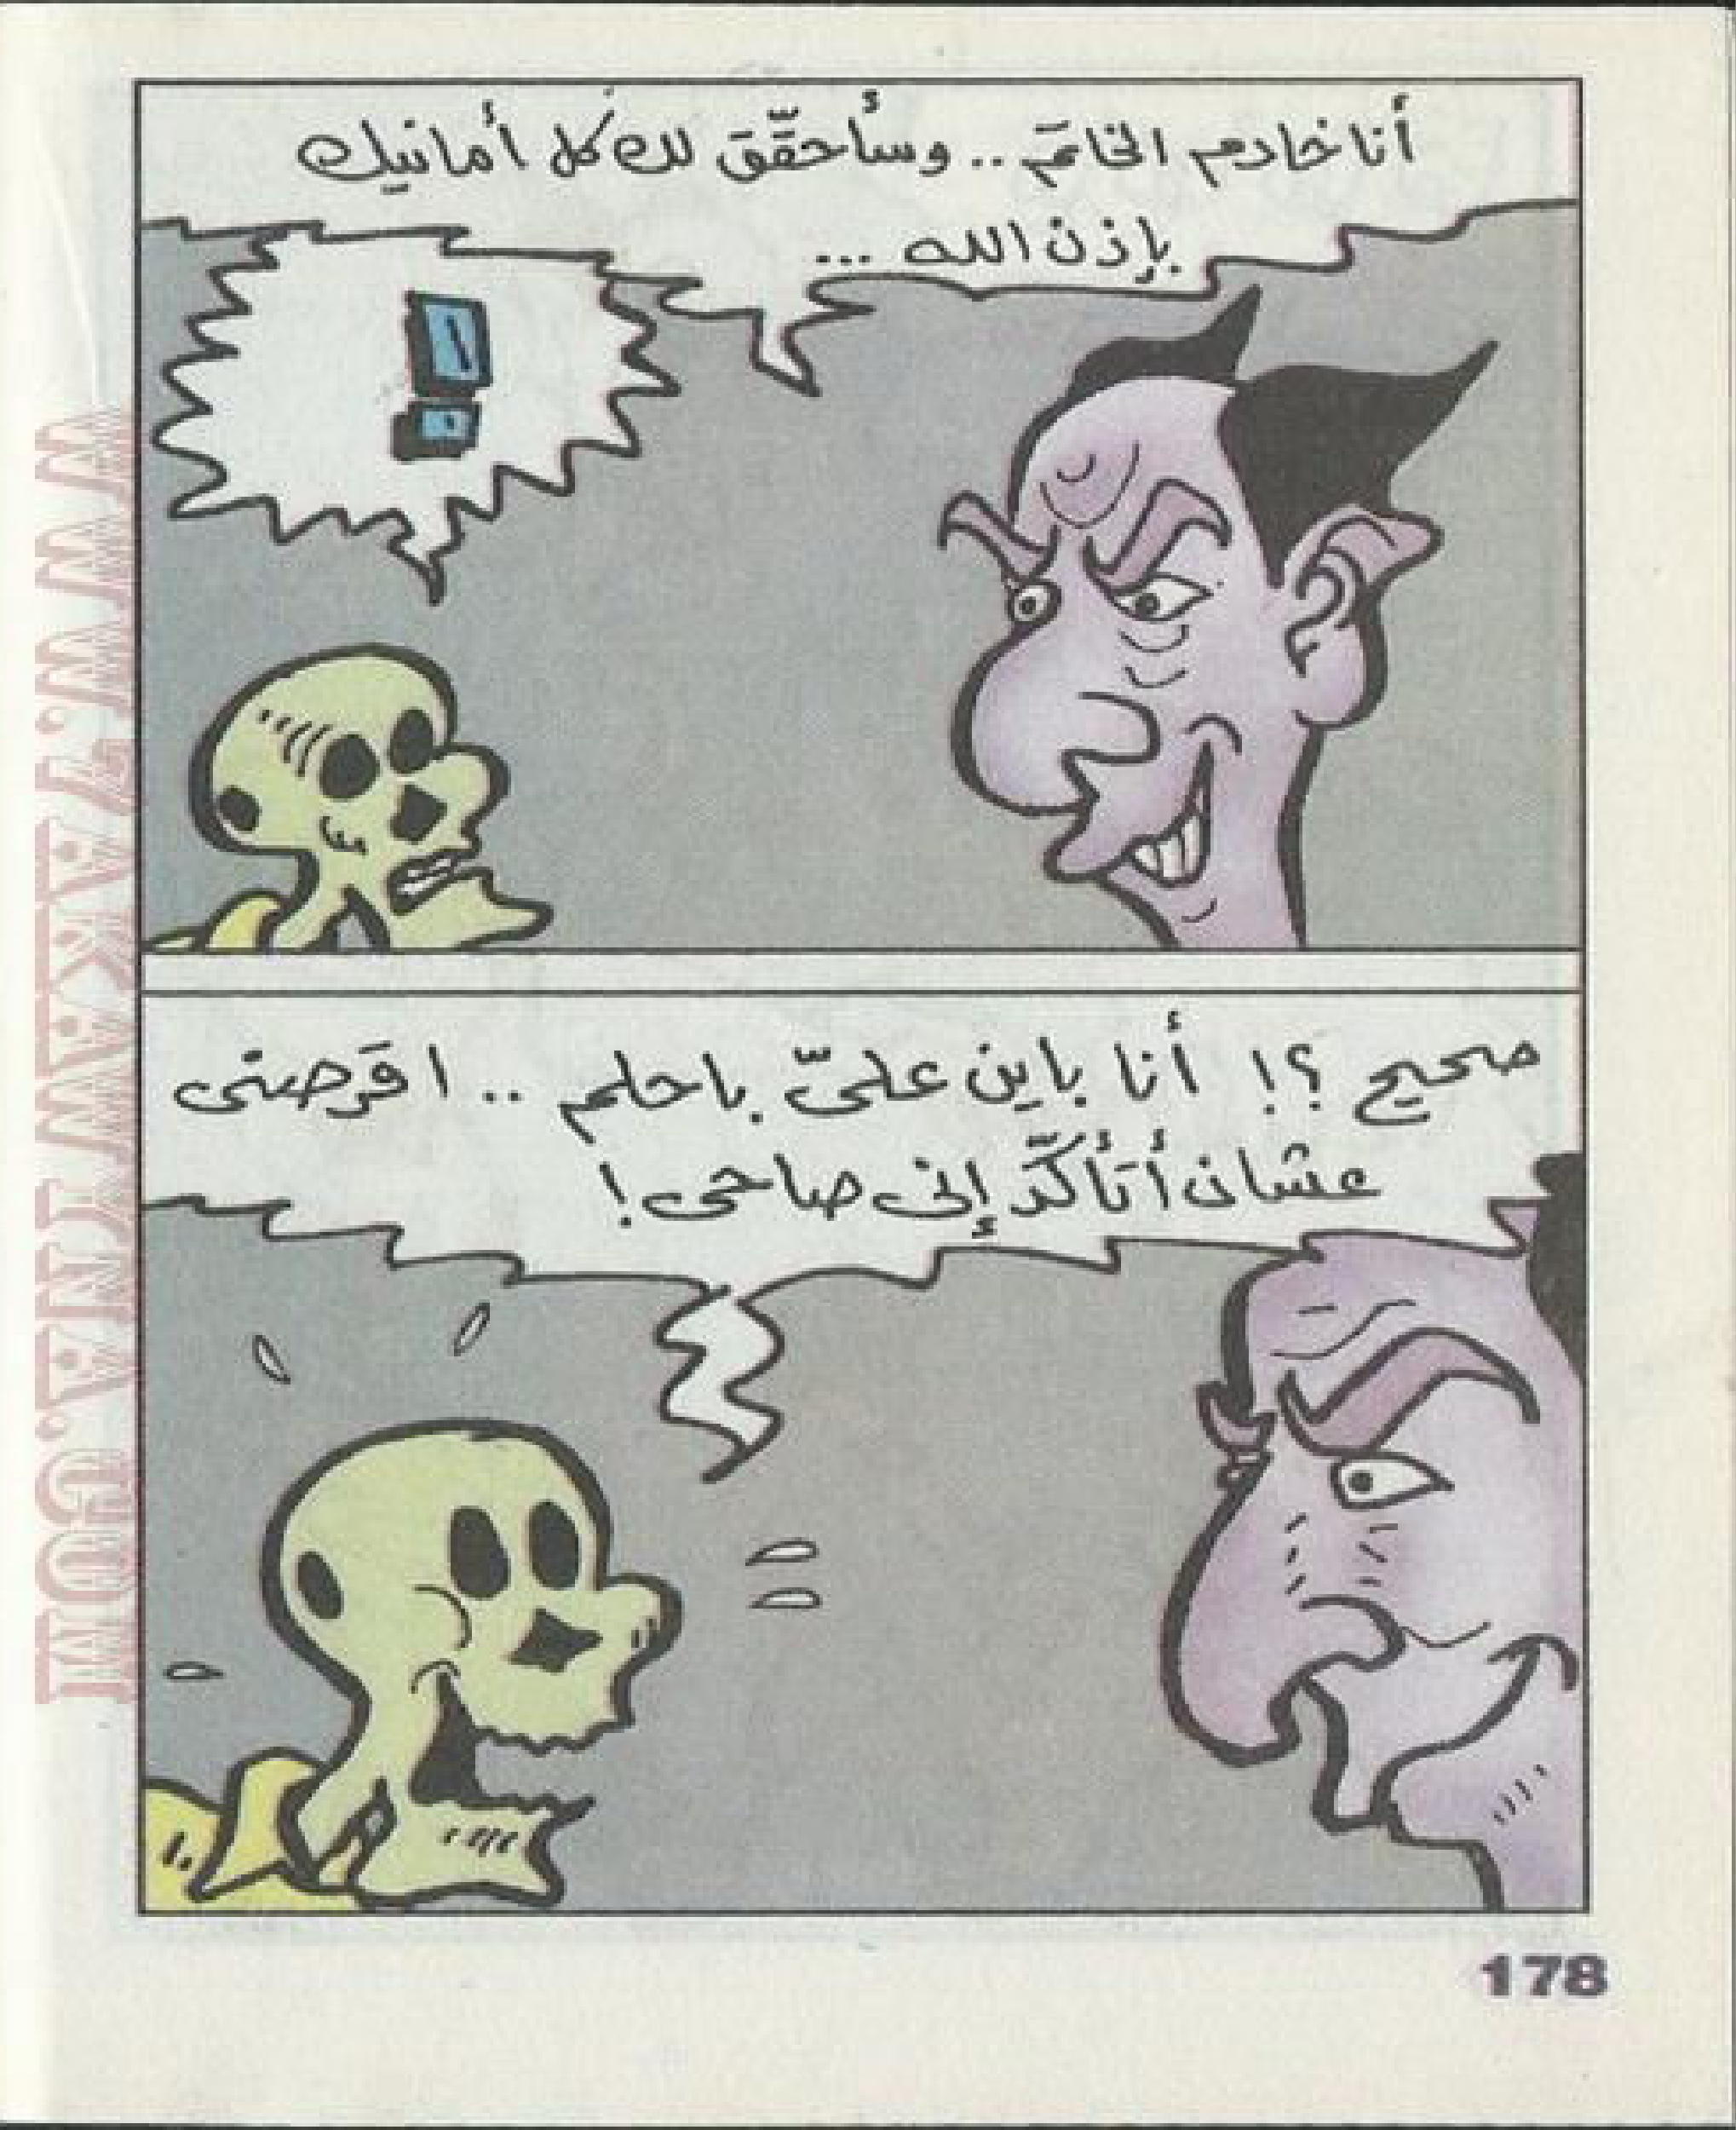 أنا خادم الخاتَم .. وسأُحقِّقَ لك كل أمانيك
بإذن الله ...
!
صحيح ؟! أنا باين علىّ باحلم .. اقرَصنى
عشان أتأكّد إنى صاحى !
178
WWW.ZAKAWLINA.COM